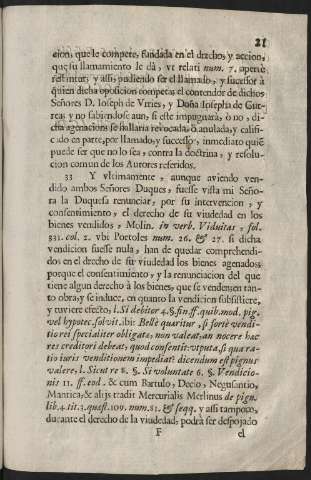 21
cion, que le compete, fundada en el drecho, y accion,
que su llamamiento le dà, vt relati num. 7. apertè
restintur; y assi, pudiendo ser el llamado, y sucessor à
quien dicha oposicion competa; el contendor de dichos
Señores D. Ioseph de Vrries, y Doña Iosepha de Gur-
rea; y no sabiendose aun, si este impugnarà, ò no, di-
cha agenacion se hallaria revocada, ò anulada, y califi-
cado en parte, por llamado, y successor, inmediato quiē
puede ser que no lo sea, contra la doctrina, y resolu-
cion comun de los Autores referidos.
33 Y vltimamente, aunque aviendo ven-
dido ambos Señores Duques, fuesse vista mi Seño-
ra la Duquesa renunciar, por su intervencion, y
consentimiento, el derecho de su viudedad en los
bienes vendidos, Molin. in verb. Viduitas, fol.
331. col. 2. vbi Portoles num. 26. & 27. si dicha
vendicion fuesse nula, han de quedar comprehendi-
dos en el drecho de su viudedad los bienes agenados;
porque el consentimiento, y la renunciacion del que
tiene algun derecho à los bienes, que se venden, en tan-
to obra, y se induce, en quanto la vendicion subsistiere,
y tuviere efecto, l. Si debitor 4. §. fin. ff. quib. mod. pig.
vel hypotec. solvit. ibi: Bellè quaritur, si fortè vendi-
tio rei specialiter obligata, non valeat, an nocere hac
res creditori debeat, quod consentit: vtputa, si qua ra-
tio iuris venditionem impediat? dicendum est pignus
valere, l. Sicut re 8. §. Si voluntate 6. §. Vendicio-
nis 11. ff. eod. & cum Bartulo, Decio, Negusantio,
Mantica, & alijs tradit Mercurialis Merlinus de pign.
lib. 4. tit. 3. quæst. 109. num. 81. & seqq. y assi tampoco,
durante el derecho de la viudedad, podrà ser despojado
F el